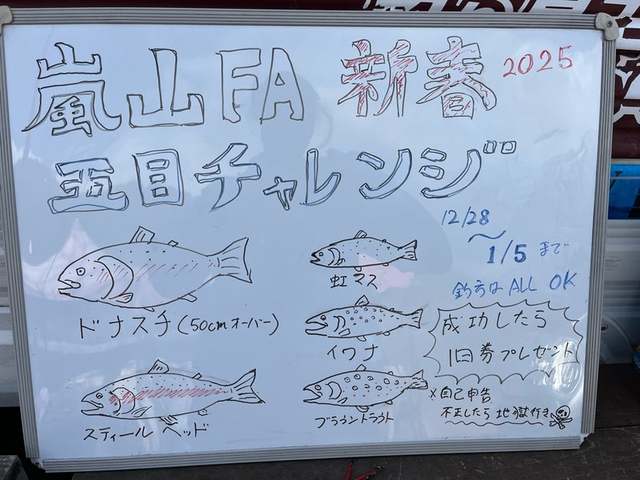 嵐山FA 新春 2025
五目チャレンジ
12/28
～
1/5 まで
釣方はALL OK
ドナスチ(50cmオーバー)
虹マス
イワナ
スティールヘッド
ブラウントラウト
成功したら
1日券プレゼント
×自己申告
不正したら地獄行き